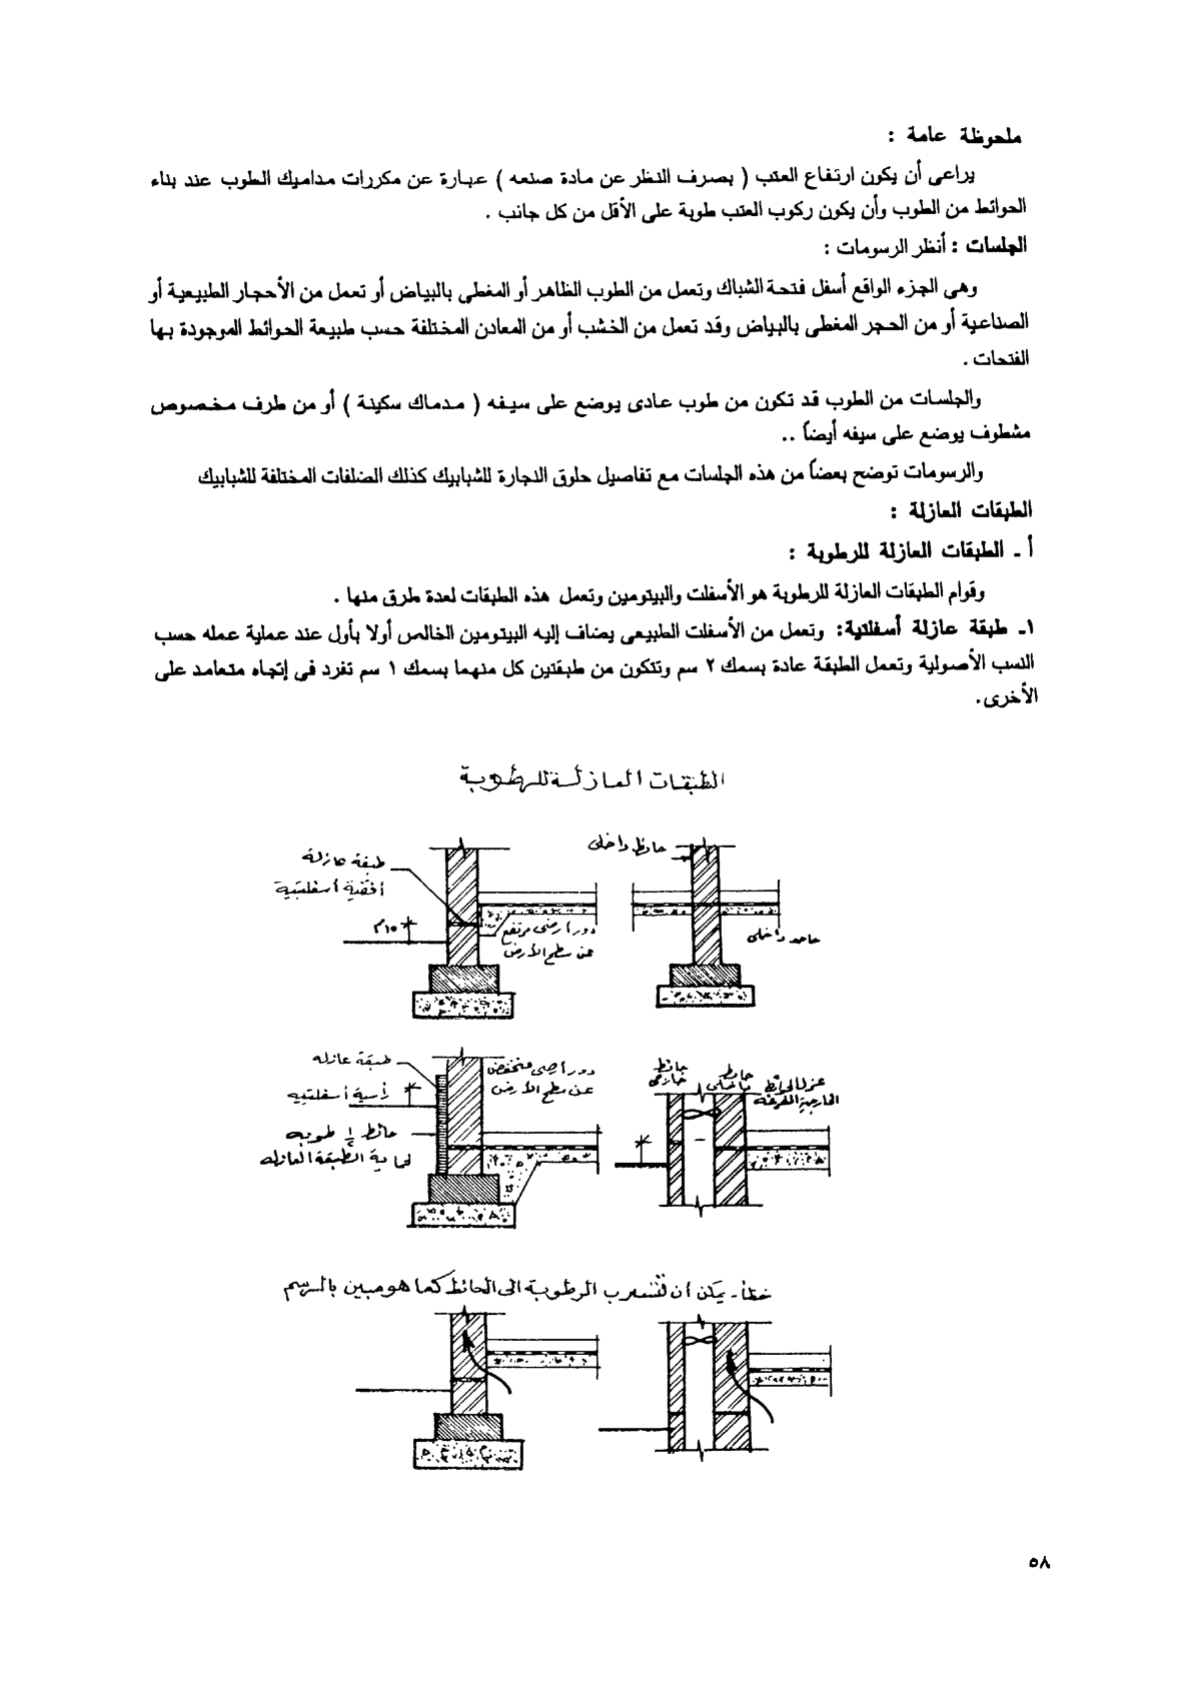 ملحوظة عامة :
يراعى أن يكون ارتفاع العتب ( بصرف النظر عن مادة صنعه ) عبارة عن مكررات مداميك الطوب عند بناء
الحوائط من الطوب وأن يكون ركوب العتب طوبة على الأقل من كل جانب .
الجلسات : أنظر الرسومات :
وهى الجزء الواقع أسفل فتحة الشباك وتعمل من الطوب الظاهر أو المغطى بالبياض أو تعمل من الأحجار الطبيعية أو
الصناعية أو من الحجر المغطى بالبياض وقد تعمل من الخشب أو من المعادن المختلفة حسب طبيعة الحوائط الموجودة بها
الفتحات .
والجلسات من الطوب قد تكون من طوب عادى يوضع على سيفه ( مدماك سكينة ) أو من طرف مخصوص
مشطوف يوضع على سيفه أيضاً ..
والرسومات توضح بعضاً من هذه الجلسات مع تفاصيل حلوق النجارة للشبابيك كذلك الضلفات المختلفة للشبابيك
الطبقات العازلة :
أ ـ الطبقات العازلة للرطوبة :
وقوام الطبقات العازلة للرطوبة هو الأسفلت والبيتومين وتعمل هذه الطبقات لعدة طرق منها .
١ـ طبقة عازلة أسفلتية: وتعمل من الأسفلت الطبيعى يضاف إليه البيتومين الخالص أولا بأول عند عملية عمله حسب
النسب الأصولية وتعمل الطبقة عادة بسمك ٢ سم وتتكون من طبقتين كل منهما بسمك ١ سم تفرد فى إتجاه متعامد على
الأخرى.
الطبقات العازلة للرطوبة
حائط داخلى
طبقة عازلة
أفقية أسفلتية
١٥م
دور أرضى مرتفع
عن سطح الأرض
داخلى
طبقة عازله
رأسية أسفلتيه
حائط ½ طوبه
لحماية الطبقة العازله
دور أرضى منخفض
عن سطح الأرض
حائط خارجى
حائط داخلى
عزل الحوائط
الخارجية المفرغه
خطأ ـ يمكن أن تتسرب الرطوبة الى الحائط كما هو مبين بالرسم
٥٨